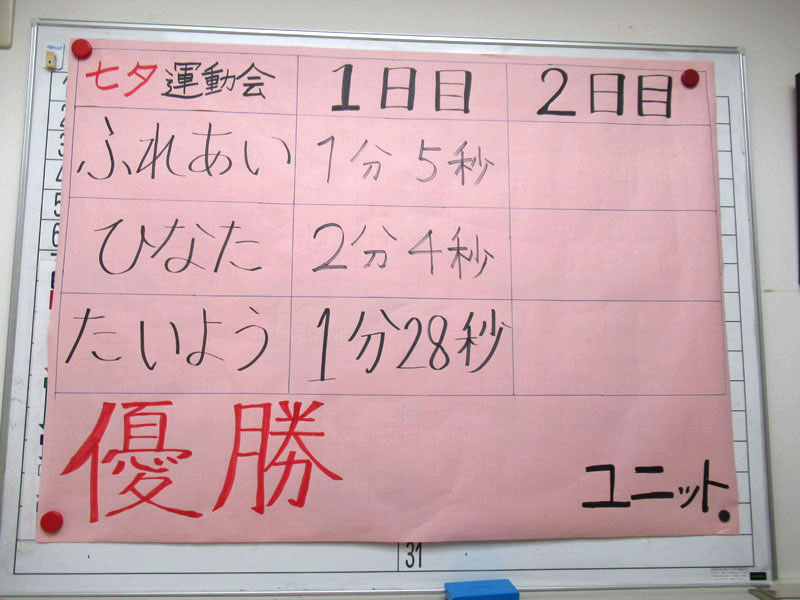 七夕 運動会 1日目 2日目
ふれあい 1分 5秒
ひなた 2分 4秒
たいよう 1分28秒
優勝
ユニット
31